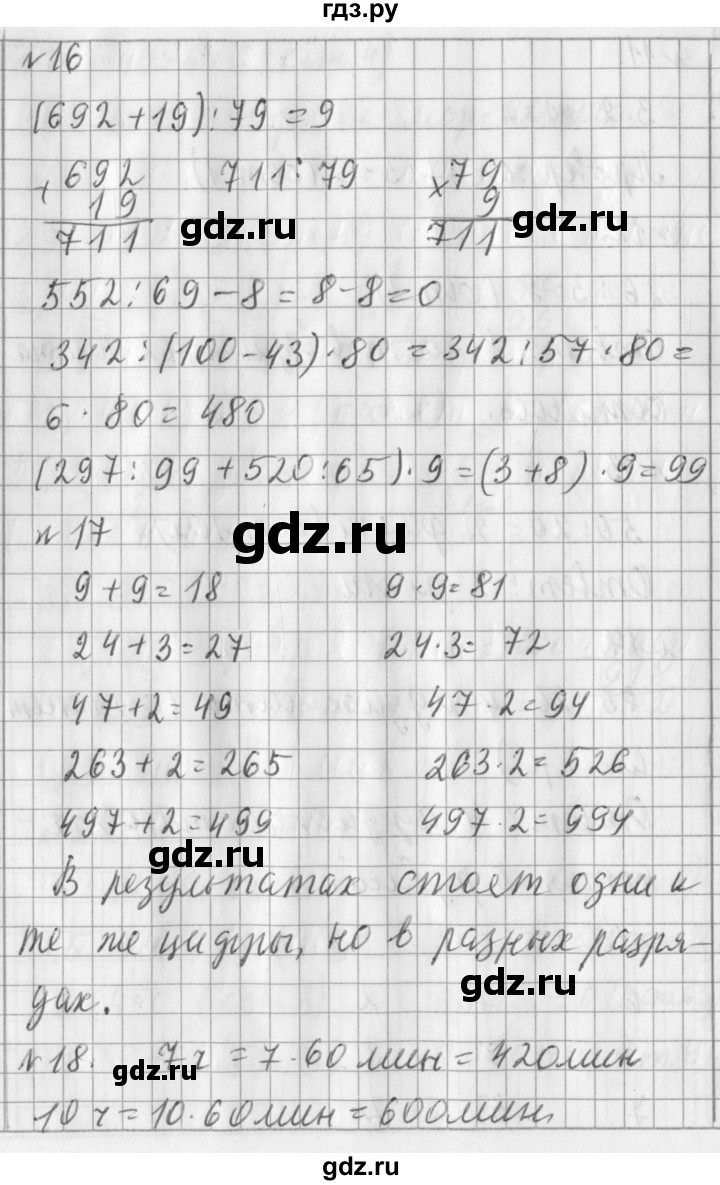 гдз.ру
№16
(692+19):79=9
+692 711:79 ×79
19 9
711 711
gdz.ru gdz.ru
552:69-8=8-8=0
gdz.ru
342:(100-43)·80=342:57·80=
6·80=480
(297:99+520:65)·9=(3+8)·9=99
gdz.ru
№17
9+9=18 9·9=81
24+3=27 24·3=72
47+2=49 47·2=94
263+2=265 263·2=526
497+2=499 497·2=994
gdz.ru
В результатах стоят одни и
те же цифры, но в разных разря-
дах.
gdz.ru
№18. 7ч=7·60мин=420мин
gdz.ru
10ч=10·60мин=600мин
gdz.ru